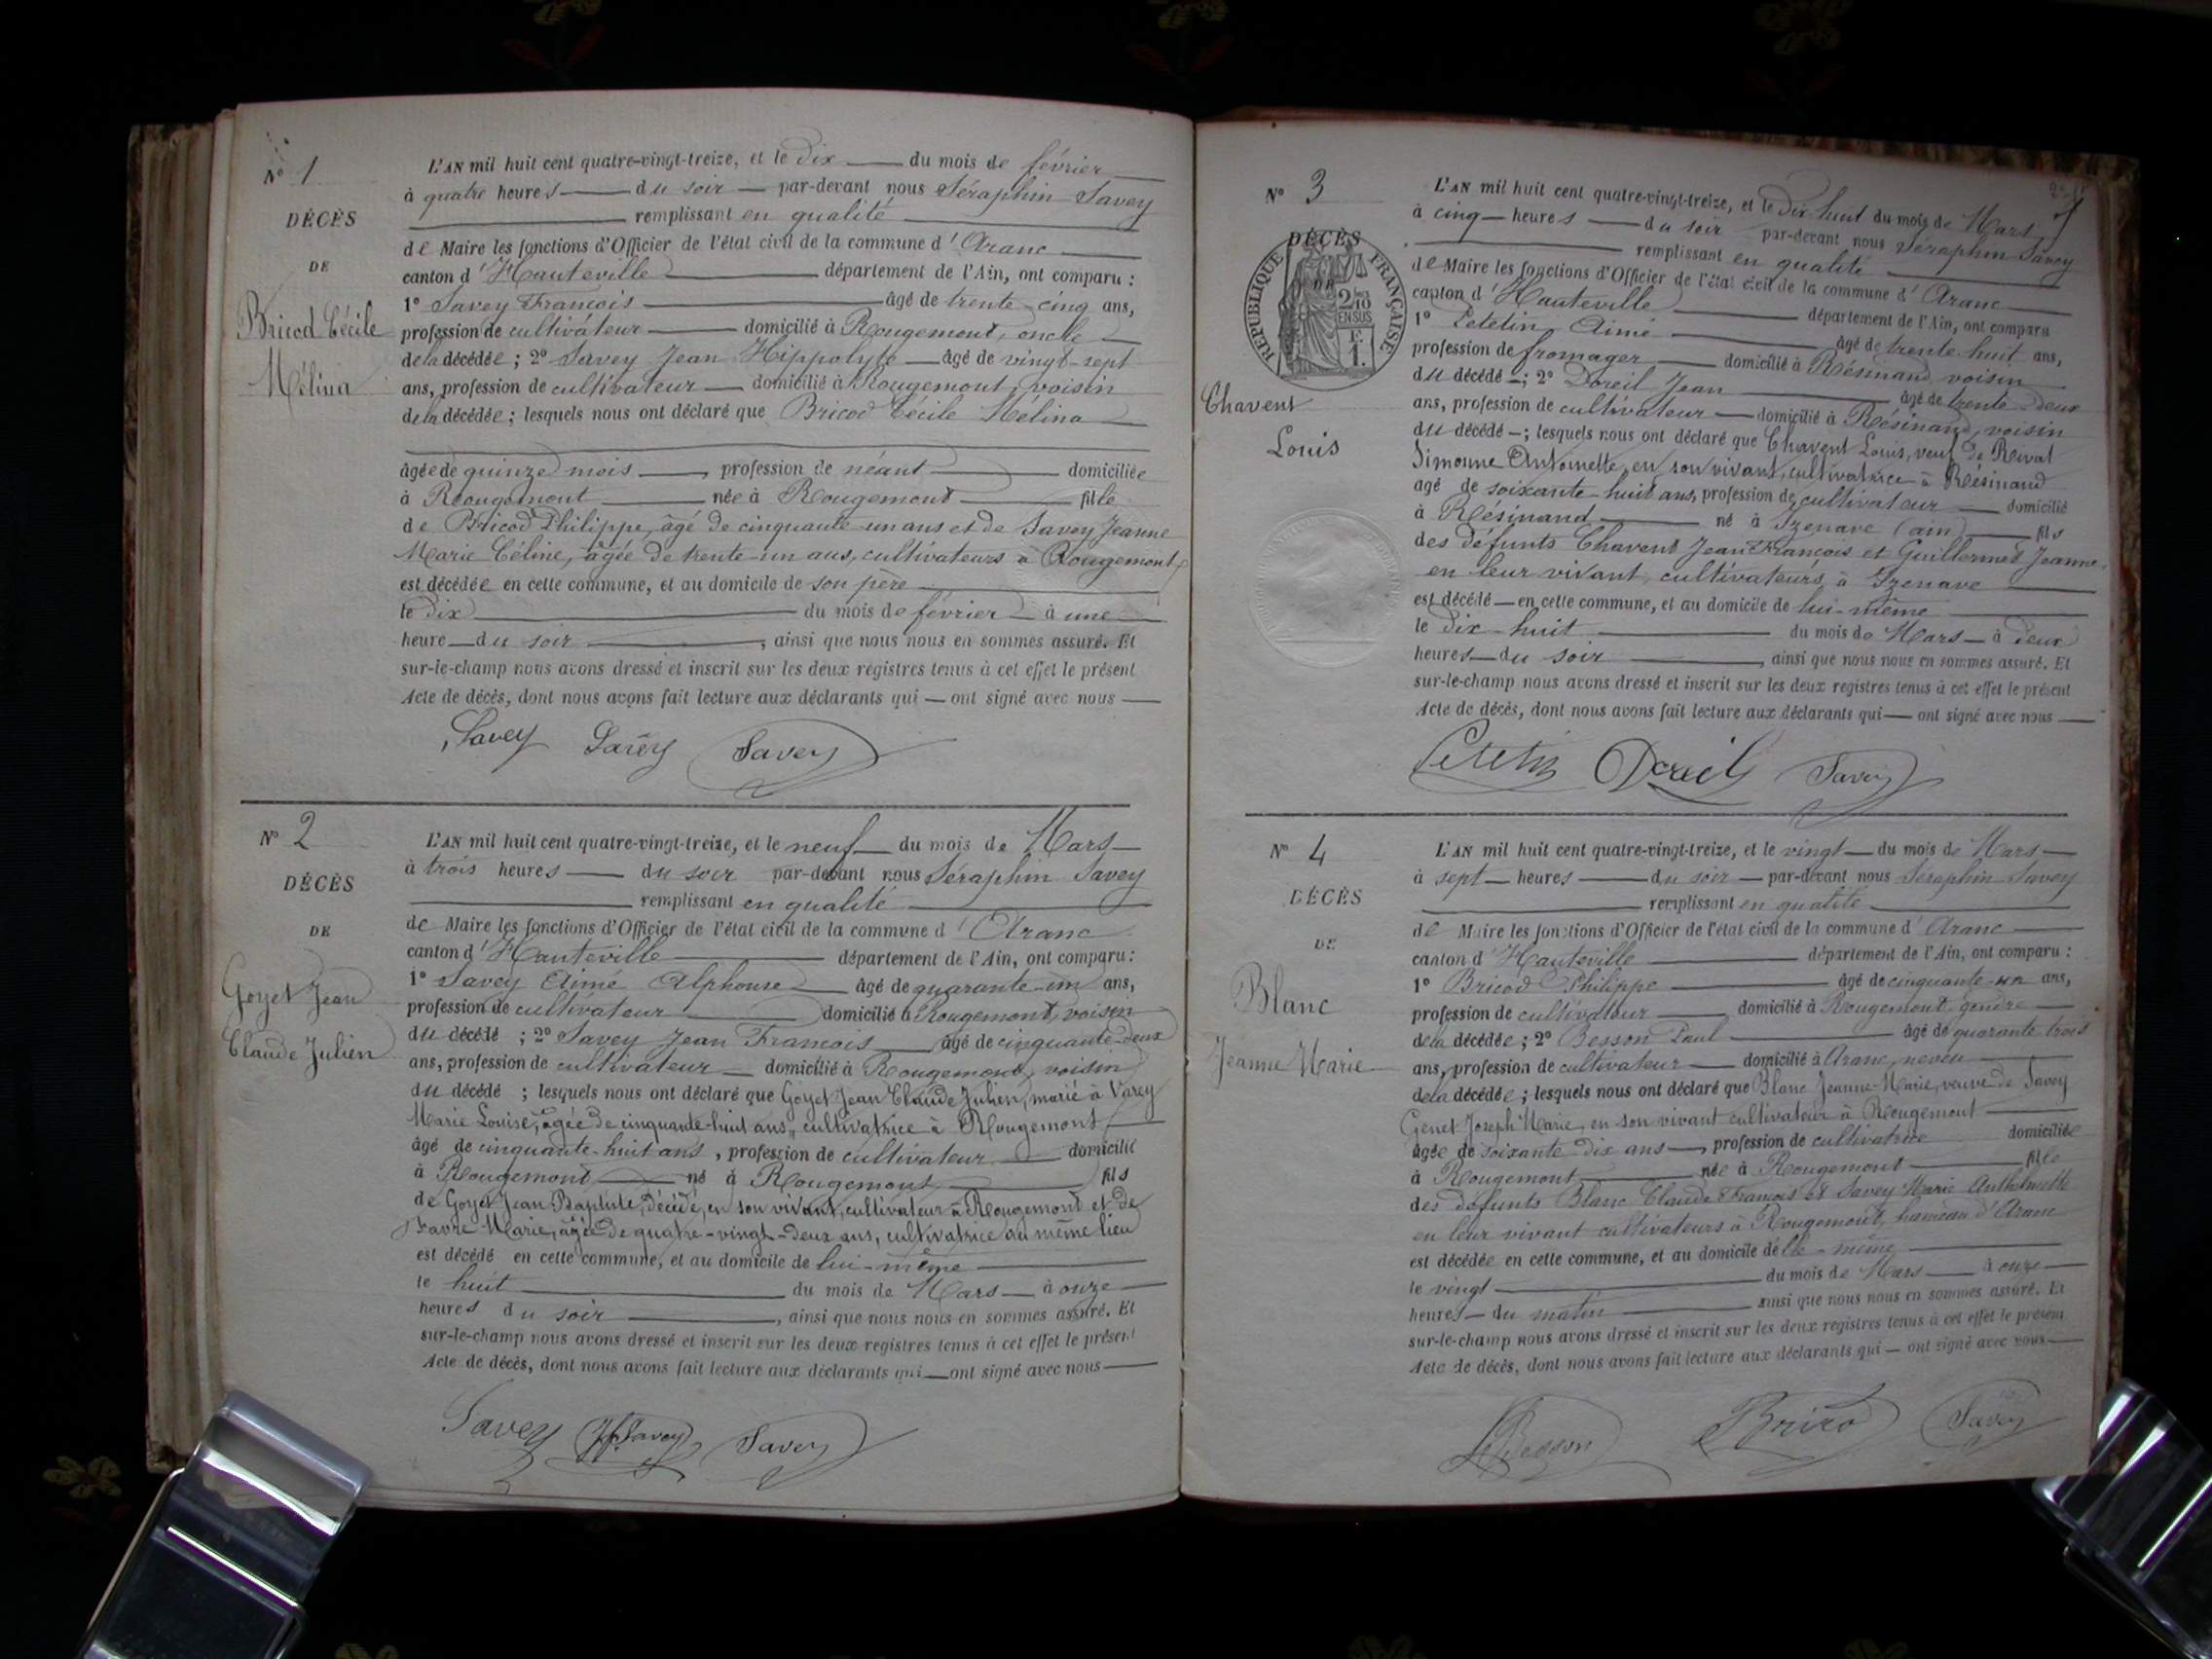 N° 1
DÉCÈS
DE
Bricod Cécile
Mélina
L'AN mil huit cent quatre-vingt-treize, et le dix du mois de février
à quatre heures du soir par-devant nous Séraphin Savey
remplissant en qualité
de Maire les fonctions d'Officier de l'état civil de la commune d'Aranc
canton d'Hauteville département de l'Ain, ont comparu :
1° Savey François âgé de trente-cinq ans,
profession de cultivateur domicilié à Rougemont, oncle
de la décédée ; 2° Savey Jean Hippolyte âgé de vingt-sept
ans, profession de cultivateur domicilié à Rougemont, voisin
de la décédée ; lesquels nous ont déclaré que Bricod Cécile Mélina
âgée de quinze mois, profession de néant domiciliée
à Rougemont née à Rougemont fille
de Bricod Philippe, âgé de cinquante-un ans et de Savey Jeanne
Marie Céline, âgée de trente-un ans, cultivateurs à Rougemont,
est décédée en cette commune, et au domicile de son père
le dix du mois de février à une
heure du soir, ainsi que nous nous en sommes assuré. Et
sur-le-champ nous avons dressé et inscrit sur les deux registres tenus à cet effet le présent
Acte de décès, dont nous avons fait lecture aux déclarants qui — ont signé avec nous
Savey Savey Savey
N° 2
DÉCÈS
DE
Goyet Jean
Claude Julien
L'AN mil huit cent quatre-vingt-treize, et le neuf du mois de Mars
à trois heures du soir par-devant nous Séraphin Savey
remplissant en qualité
de Maire les fonctions d'Officier de l'état civil de la commune d'Aranc
canton d'Hauteville département de l'Ain, ont comparu :
1° Savey Aimé Alphonse âgé de quarante-un ans,
profession de cultivateur domicilié à Rougemont, voisin
du décédé ; 2° Savey Jean François âgé de cinquante-deux
ans, profession de cultivateur domicilié à Rougemont, voisin
du décédé ; lesquels nous ont déclaré que Goyet Jean Claude Julien, marié à Varey
Marie Louise, âgée de cinquante-huit ans, cultivatrice à Rougemont
âgé de cinquante-huit ans, profession de cultivateur domicilié
à Rougemont né à Rougemont fils
de Goyet Jean Baptiste, décédé, en son vivant, cultivateur à Rougemont et de
Favre Marie, âgée de quatre-vingt-deux ans, cultivatrice au même lieu
est décédé en cette commune, et au domicile de lui-même
le huit du mois de Mars à onze
heures du soir, ainsi que nous nous en sommes assuré. Et
sur-le-champ nous avons dressé et inscrit sur les deux registres tenus à cet effet le présent
Acte de décès, dont nous avons fait lecture aux déclarants qui — ont signé avec nous
Savey Savey Savey
N° 3
DÉCÈS
RÉPUBLIQUE FRANÇAISE
2/10
EN SUS
F.
1.
Chavent
Louis
L'AN mil huit cent quatre-vingt-treize, et le dix huit du mois de Mars
à cinq heures du soir par-devant nous Séraphin Savey
remplissant en qualité
de Maire les fonctions d'Officier de l'état civil de la commune d'Aranc
canton d'Hauteville département de l'Ain, ont comparu
1° Petetin Aimé âgé de trente huit ans,
profession de fromager domicilié à Résinand, voisin
du décédé ; 2° Doreil Jean âgé de trente-deux
ans, profession de cultivateur domicilié à Résinand, voisin
du décédé ; lesquels nous ont déclaré que Chavent Louis, veuf de
Simonne Antoinette, en son vivant, cultivatrice à Résinand
âgé de soixante-huit ans, profession de cultivateur domicilié
à Résinand né à Izenave (ain) fils
des défunts Chavent Jean François et Guillermet Jeanne,
en leur vivant, cultivateurs, à Izenave
est décédé en cette commune, et au domicile de lui-même
le dix-huit du mois de Mars à deux
heures du soir, ainsi que nous nous en sommes assuré. Et
sur-le-champ nous avons dressé et inscrit sur les deux registres tenus à cet effet le présent
Acte de décès, dont nous avons fait lecture aux déclarants qui — ont signé avec nous
Petetin Doreil Savey
N° 4
DÉCÈS
DE
Blanc
Jeanne Marie
L'AN mil huit cent quatre-vingt-treize, et le vingt du mois de Mars
à sept heures du soir par-devant nous Séraphin Savey
remplissant en qualité
de Maire les fonctions d'Officier de l'état civil de la commune d'Aranc
canton d'Hauteville département de l'Ain, ont comparu :
1° Bricod Philippe âgé de cinquante-un ans,
profession de cultivateur domicilié à Rougemont, gendre
de la décédée ; 2° Besson Paul âgé de quarante trois
ans, profession de cultivateur domicilié à Aranc, neveu
de la décédée ; lesquels nous ont déclaré que Blanc Jeanne-Marie, veuve de Savey
Genet Joseph Marie, en son vivant cultivateur à Rougemont
âgée de soixante-dix ans, profession de cultivatrice domiciliée
à Rougemont née à Rougemont fille
des défunts Blanc Claude François et Savey Marie Anthelmette
en leur vivant cultivateurs à Rougemont, hameau d'Aranc
est décédée en cette commune, et au domicile d'elle-même
le vingt du mois de Mars à onze
heures du matin ainsi que nous nous en sommes assuré. Et
sur-le-champ nous avons dressé et inscrit sur les deux registres tenus à cet effet le présent
Acte de décès, dont nous avons fait lecture aux déclarants qui — ont signé avec nous
Besson Brico Savey